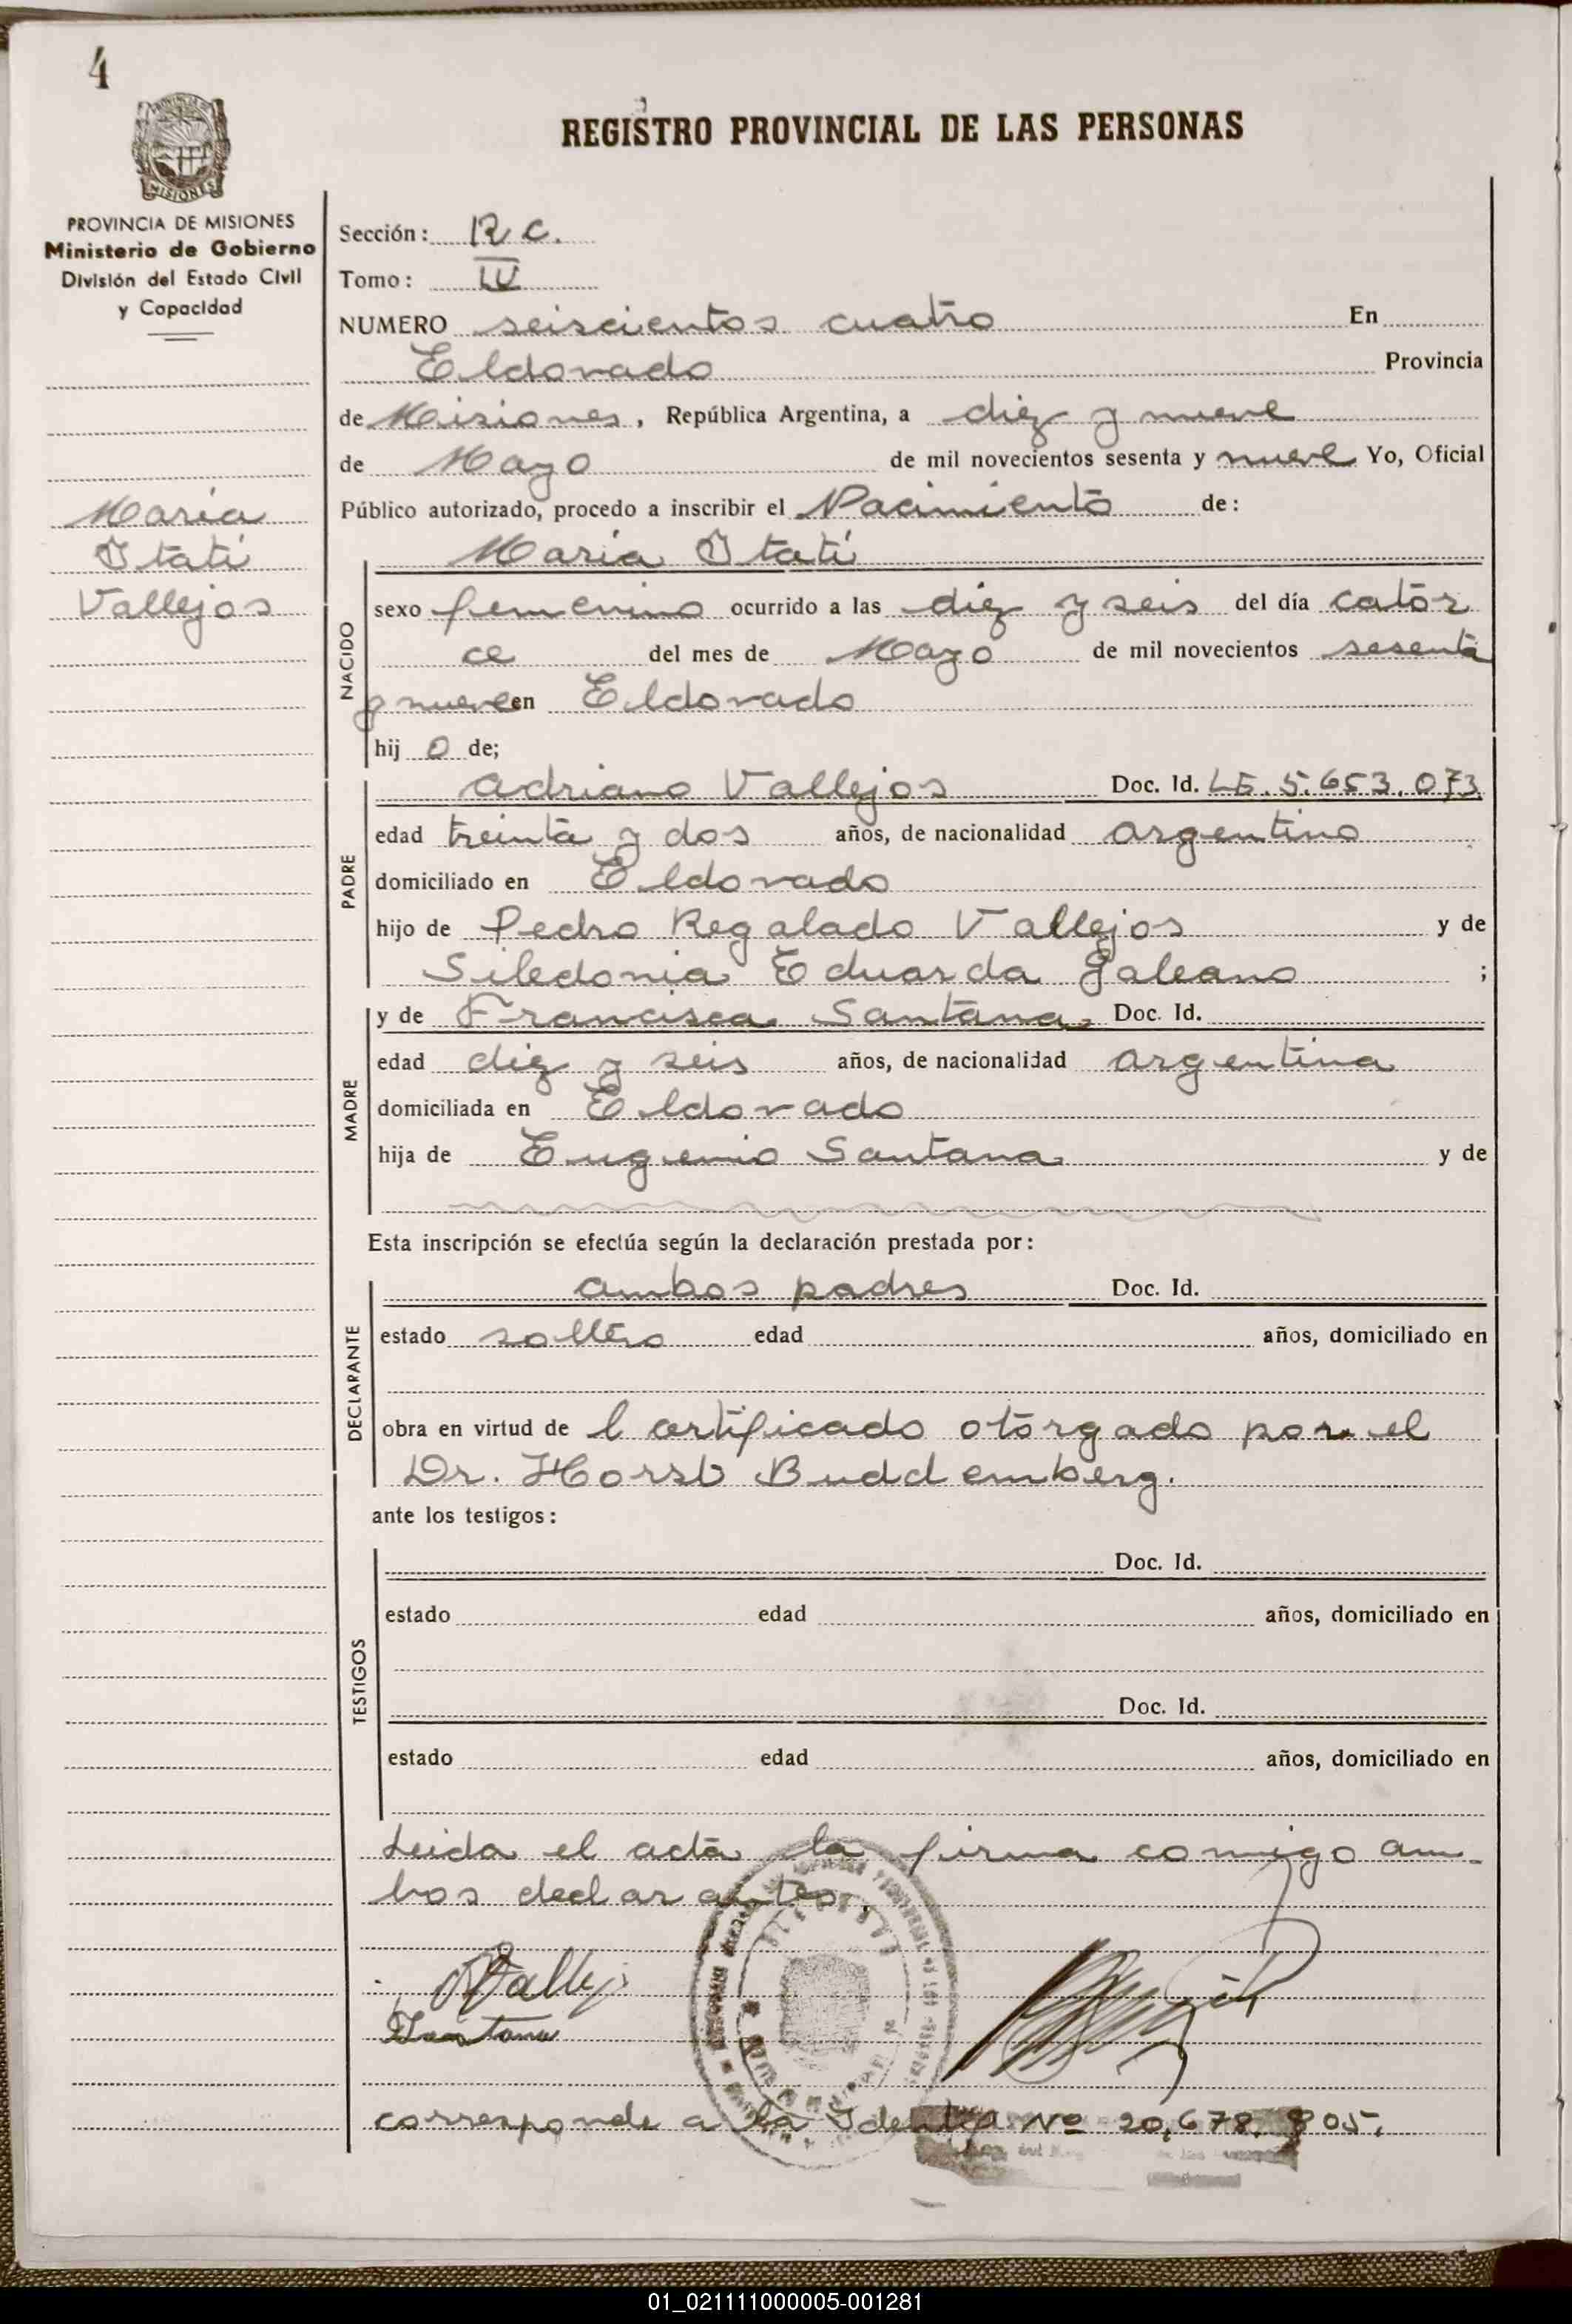 4
REGISTRO PROVINCIAL DE LAS PERSONAS
MISIONES
PROVINCIA DE MISIONES
Ministerio de Gobierno
División del Estado Civil
y Capacidad
María
Itatí
Vallejos
Sección: R C.
Tomo: IV
NUMERO seiscientos cuatro En
Eldorado Provincia
de Misiones, República Argentina, a diez y nueve
de Mayo de mil novecientos sesenta y nueve Yo, Oficial
Público autorizado, procedo a inscribir el Nacimiento de:
María Itatí
NACIDO
sexo femenino ocurrido a las diez y seis del día cator
ce del mes de Mayo de mil novecientos sesenta
y nueve en Eldorado
hij o de;
PADRE
Adriano Vallejos Doc. Id. LE. 5.653.073
edad treinta y dos años, de nacionalidad argentino
domiciliado en Eldorado
hijo de Pedro Regalado Vallejos y de
Siledonia Eduarda Galeano ;
MADRE
y de Francisca Santana Doc. Id.
edad diez y seis años, de nacionalidad argentina
domiciliada en Eldorado
hija de Eugenio Santana y de
Esta inscripción se efectúa según la declaración prestada por:
DECLARANTE
ambos padres Doc. Id.
estado soltero edad años, domiciliado en
obra en virtud de l certificado otorgado por el
Dr. Horst Buddemberg.
ante los testigos:
TESTIGOS
Doc. Id.
estado edad años, domiciliado en
Doc. Id.
estado edad años, domiciliado en
Leida el acta la firma comigo am-
bos declarantes.
Santana
corresponde a la Identid. Nº 20.678.805.
01_021111000005-001281